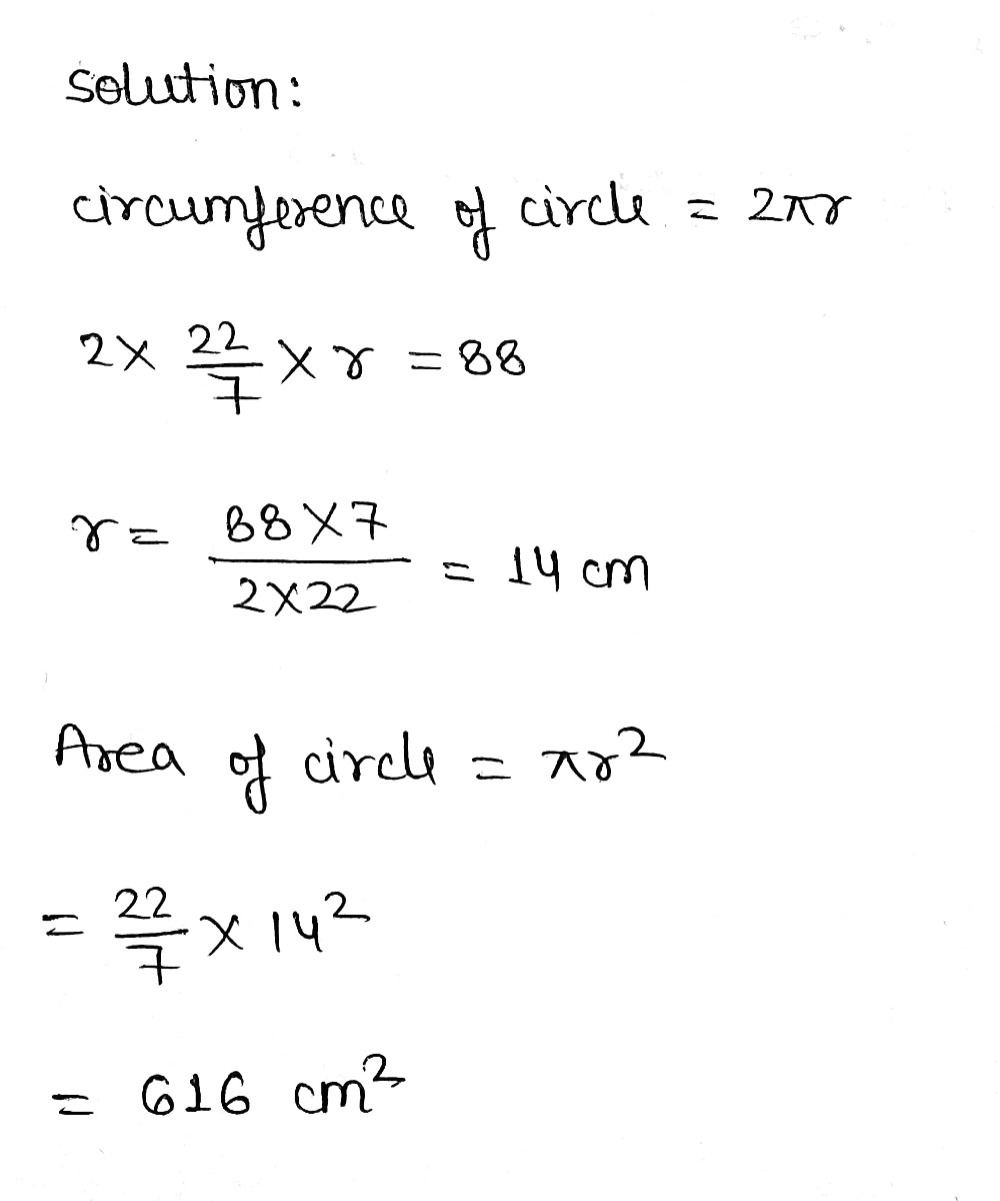 solution:
circumference of circle = 2πr
2 × 22/7 × r = 88
r = 88×7/2×22 = 14 cm
Area of circle = πr²
= 22/7 × 14²
= 616 cm²